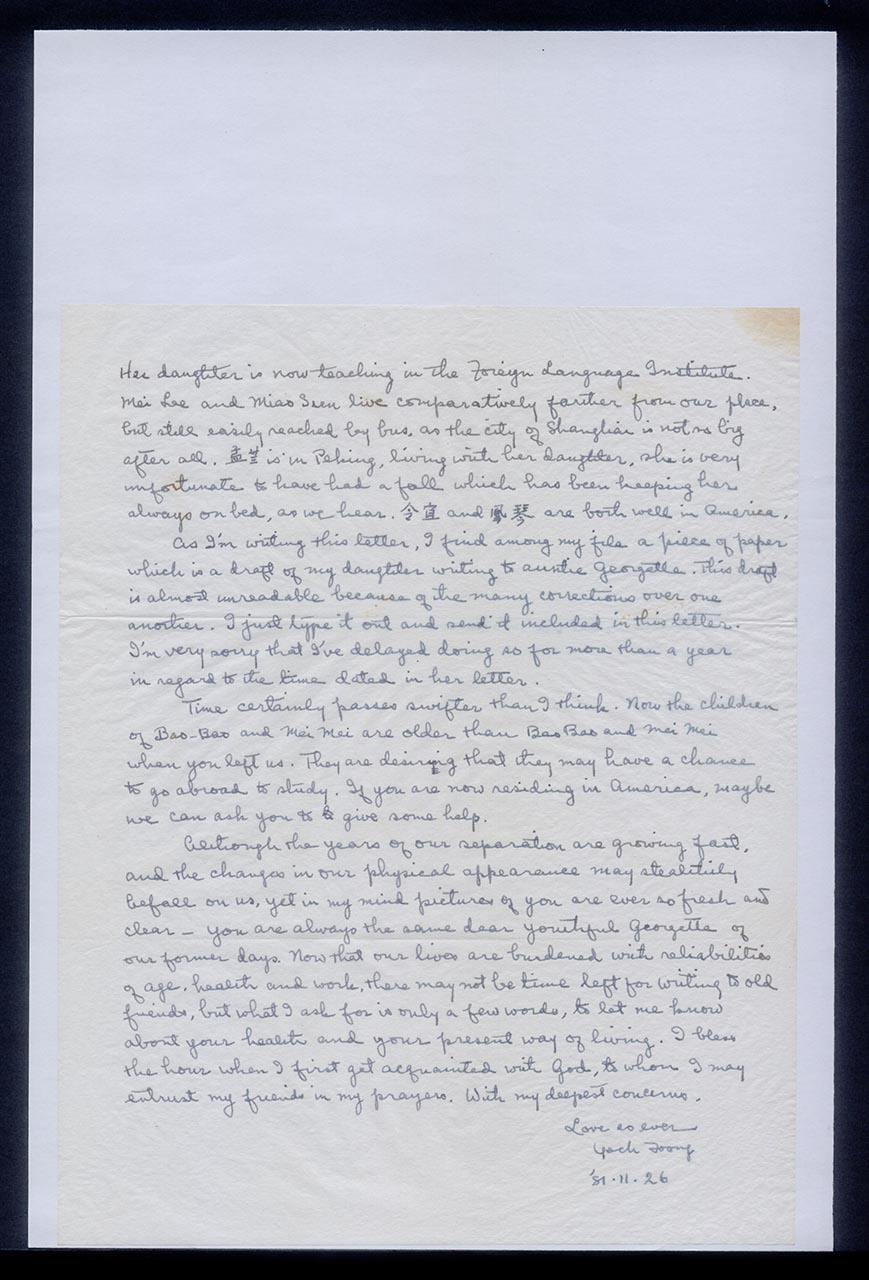 Her daughter is now teaching in the Foreign Language Institute.
Mei Lee and Miao Sun live comparatively farther from our place,
but still easily reached by bus, as the city of Shanghai is not so big
after all. 孟芝 is in Peking, living with her daughter, she is very
unfortunate to have had a fall which has been keeping her
always on bed, as we hear. 令宜 and 鳳琴 are both well in America.
As I'm writing this letter, I find among my file a piece of paper
which is a draft of my daughter writing to auntie Georgette. This draft
is almost unreadable because of the many corrections over one
another. I just type it out and send it included in this letter.
I'm very sorry that I've delayed doing so for more than a year
in regard to the time dated in her letter.
Time certainly passes swifter than I think. Now the children
of Bao-Bao and Mei Mei are older than Bao Bao and Mei Mei
when you left us. They are desiring that they may have a chance
to go abroad to study. If you are now residing in America, maybe
we can ask you to give some help.
Although the years of our separation are growing fast,
and the changes in our physical appearance may stealthily
befall on us, yet in my mind pictures of you are ever so fresh and
clear — you are always the same dear youthful Georgette of
our former days. Now that our lives are burdened with reliabilities
of age, health and work, there may not be time left for writing to old
friends, but what I ask for is only a few words, to let me know
about your health and your present way of living. I bless
the hour when I first get acquainted with God, to whom I may
entrust my friends in my prayers. With my deepest concerns,
Love as ever
Toong
'81.11.26